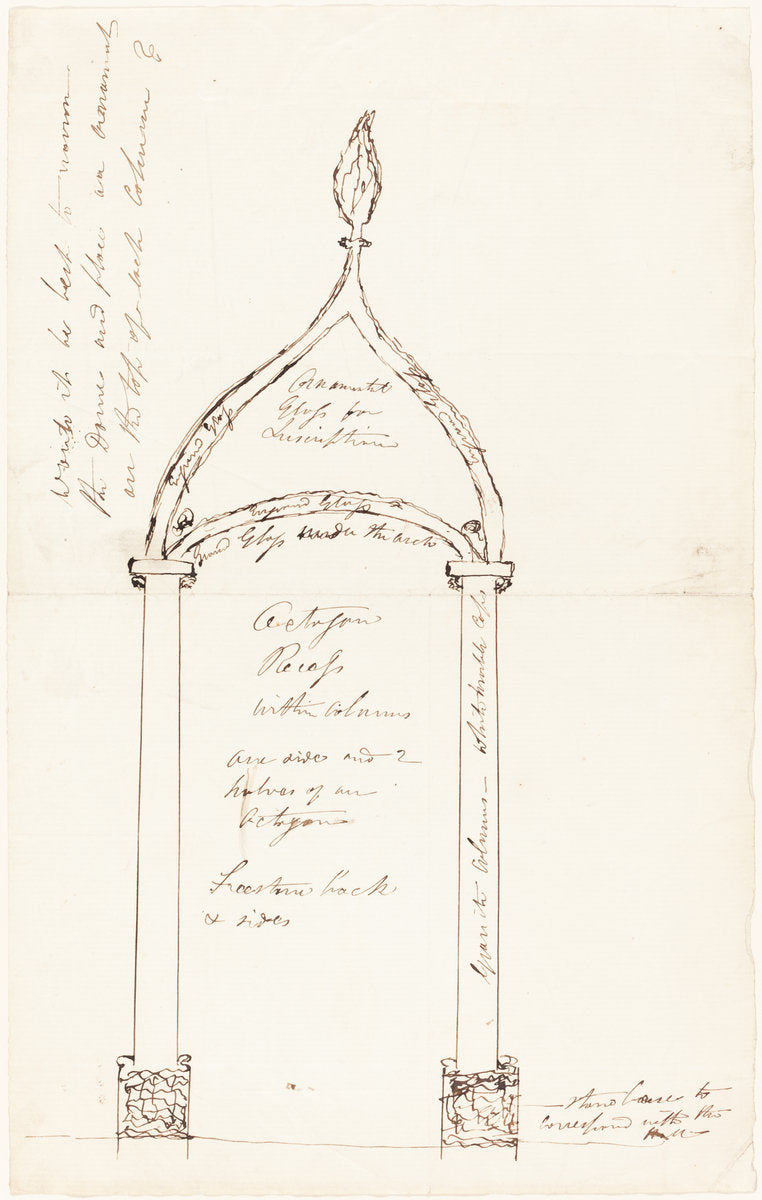 would it be best to
the Dome and place an ornament
on the top of each Column &
Ornamental
Glass for
Inscription
Engravd Glass
Engravd Glass
Engravd Glass
Ground Glass under the arch
Octagon
Recess
within columns
one side and 2
halves of an
Octagon
Freestone back
& sides
Granite Columns — white marble Caps
stone base to
correspond with the